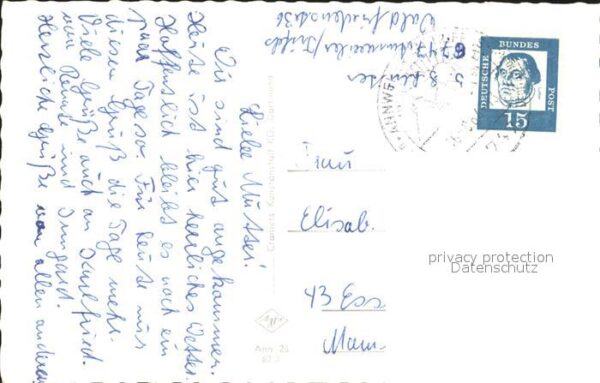 Liebe Mutter!
Wir sind gut angekommen.
Heute ist hier herrliches Wetter.
Hoffentlich bleibt es noch ein
paar Tage so. Für heute nur
diesen Gruß die Tage mehr.
Viele Grüße auch an
von Renate und Irmgard.
Herzliche Grüße von allen anderen
6747
Waldfriedenstr 36
DEUTSCHE BUNDES POST
15
Frau
Elisab.
43 Ess
Mam
privacy protection
Datenschutz
Cramers Kunstanstalt KG. Dortmund
Ann 26